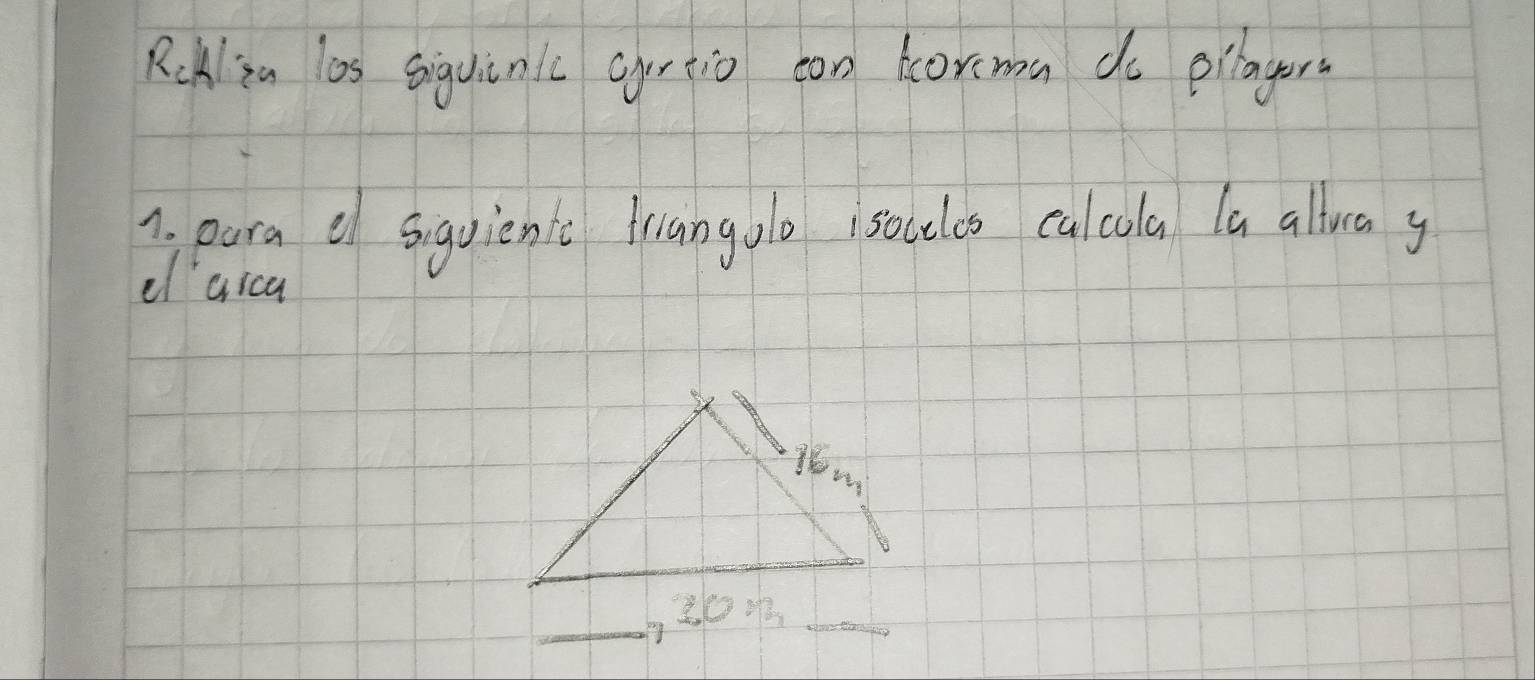 Realiza los siguiente ejercio con teorema de pitagora
1. para el siguiente triangulo isoceles calcula la altura y
el area
16m
20m